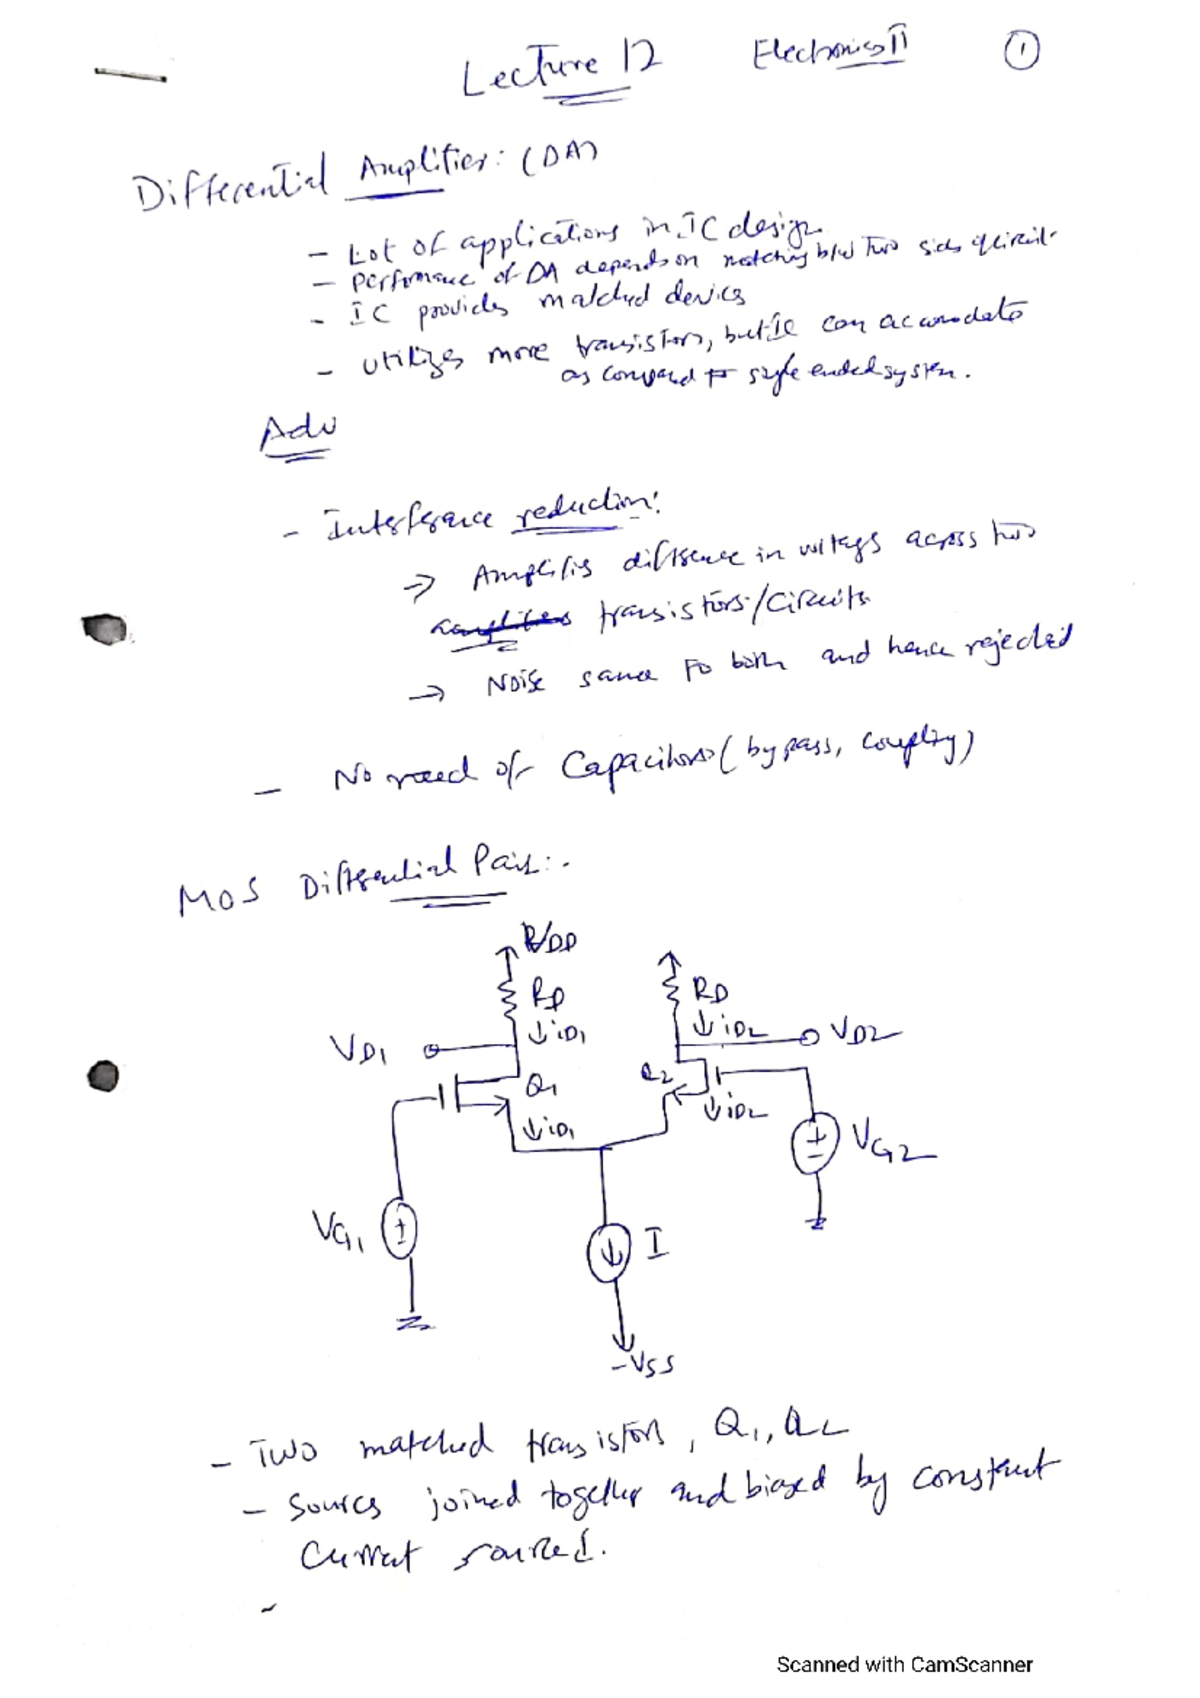 Lecture 12 Electronics II 1
Differential Amplifier: (DA)
- Lot of applications in IC design
- Performance of DA depends on matching b/w two sides of circuit.
- IC provides matched devices
- utilizes more transistors, but IC can accomodate
as compared to single ended system.
Adv
- Interference reduction:
→ Amplifies difference in voltages across two
transistors/circuits
→ Noise same to both and hence rejected
- No need of Capacitors (bypass, coupling)
MOS Differential Pair:-
VDD
RD RD
↓iD1 ↓iD2
VD1 VD2
Q1 Q2
↓iD1 ↓iD2
VG2
VG1 I
-VSS
- Two matched transistors, Q1, Q2
- Sources joined together and biased by constant
Current source I.
-
Scanned with CamScanner